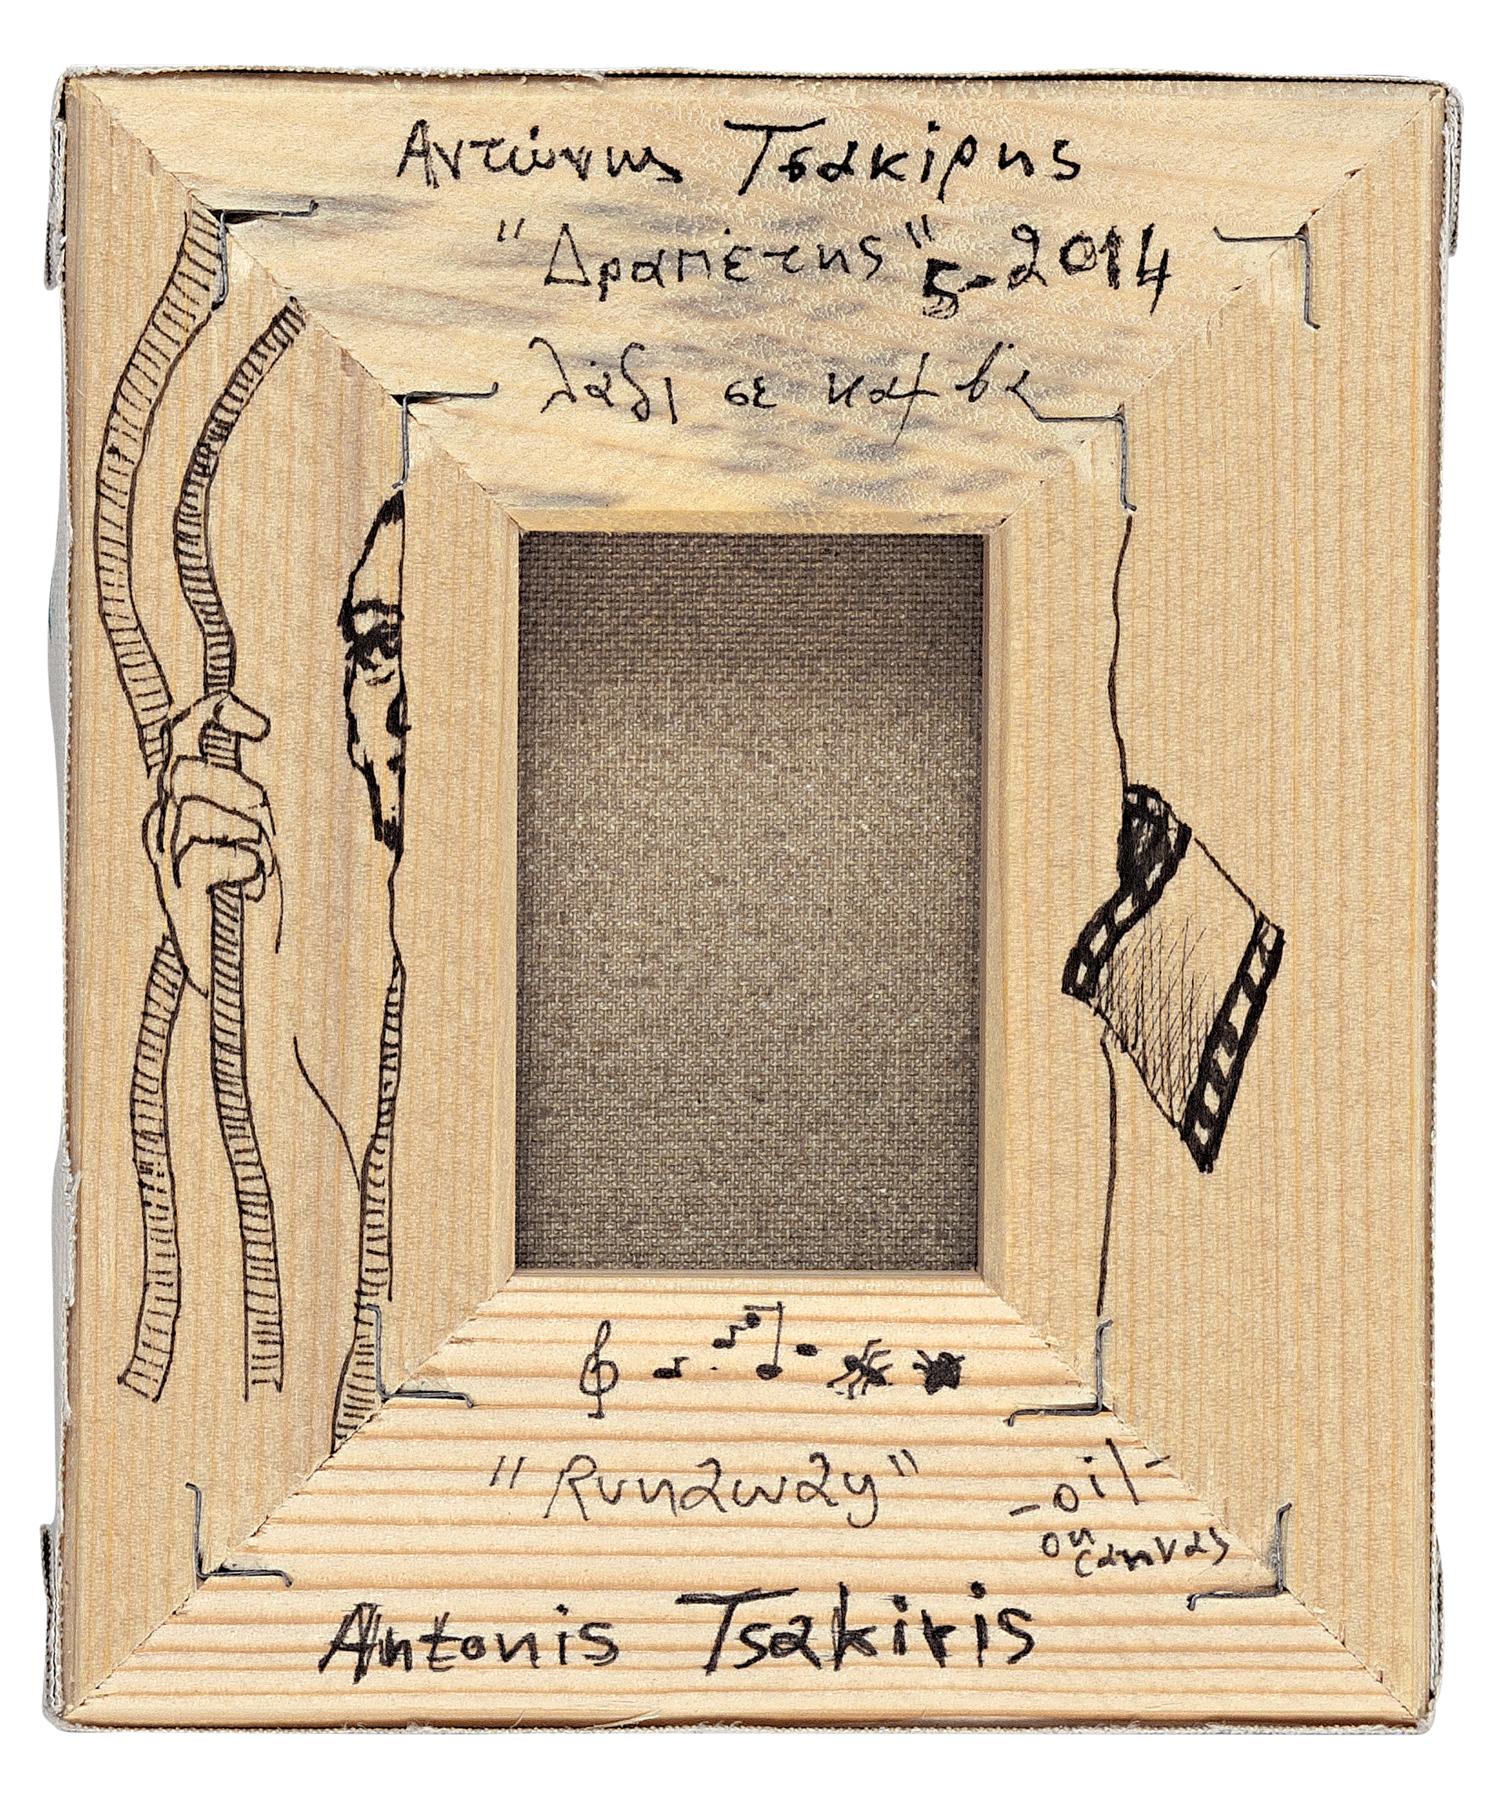 Αντώνης Τσακίρης
"Δραπέτης" 5-2014
λάδι σε καμβά
"Runaway"
-oil-
on
canvas
Antonis Tsakiris